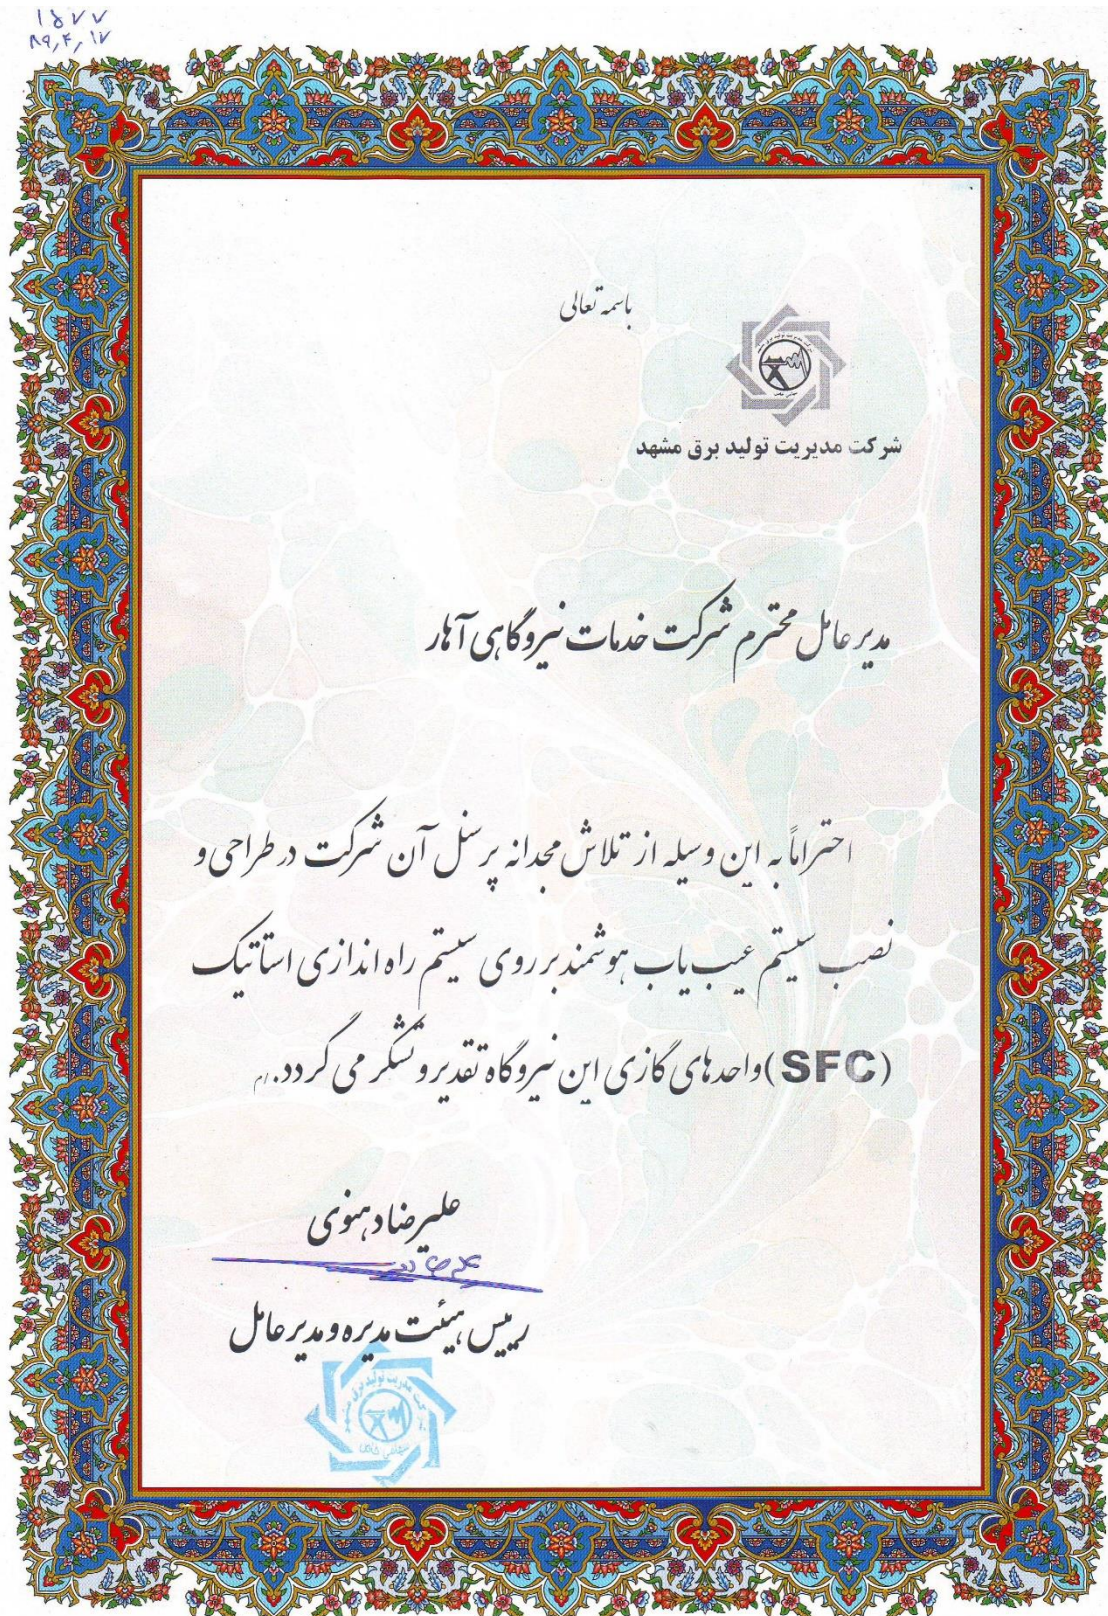 ۱۵۷۷
۸۹٫۴٫۱۷
باسمه تعالی
شرکت مدیریت تولید برق مشهد
مدیر عامل محترم شرکت خدمات نیروگاهی آهار
احتراماً به این وسیله از تلاش مجدانه پرسنل آن شرکت در طراحی و
نصب سیستم عیب یاب هوشمند بر روی سیستم راه اندازی استاتیک
(SFC) واحدهای گازی این نیروگاه تقدیر و تشکر می گردد.
علیرضا دهنوی
رییس هیئت مدیره و مدیر عامل